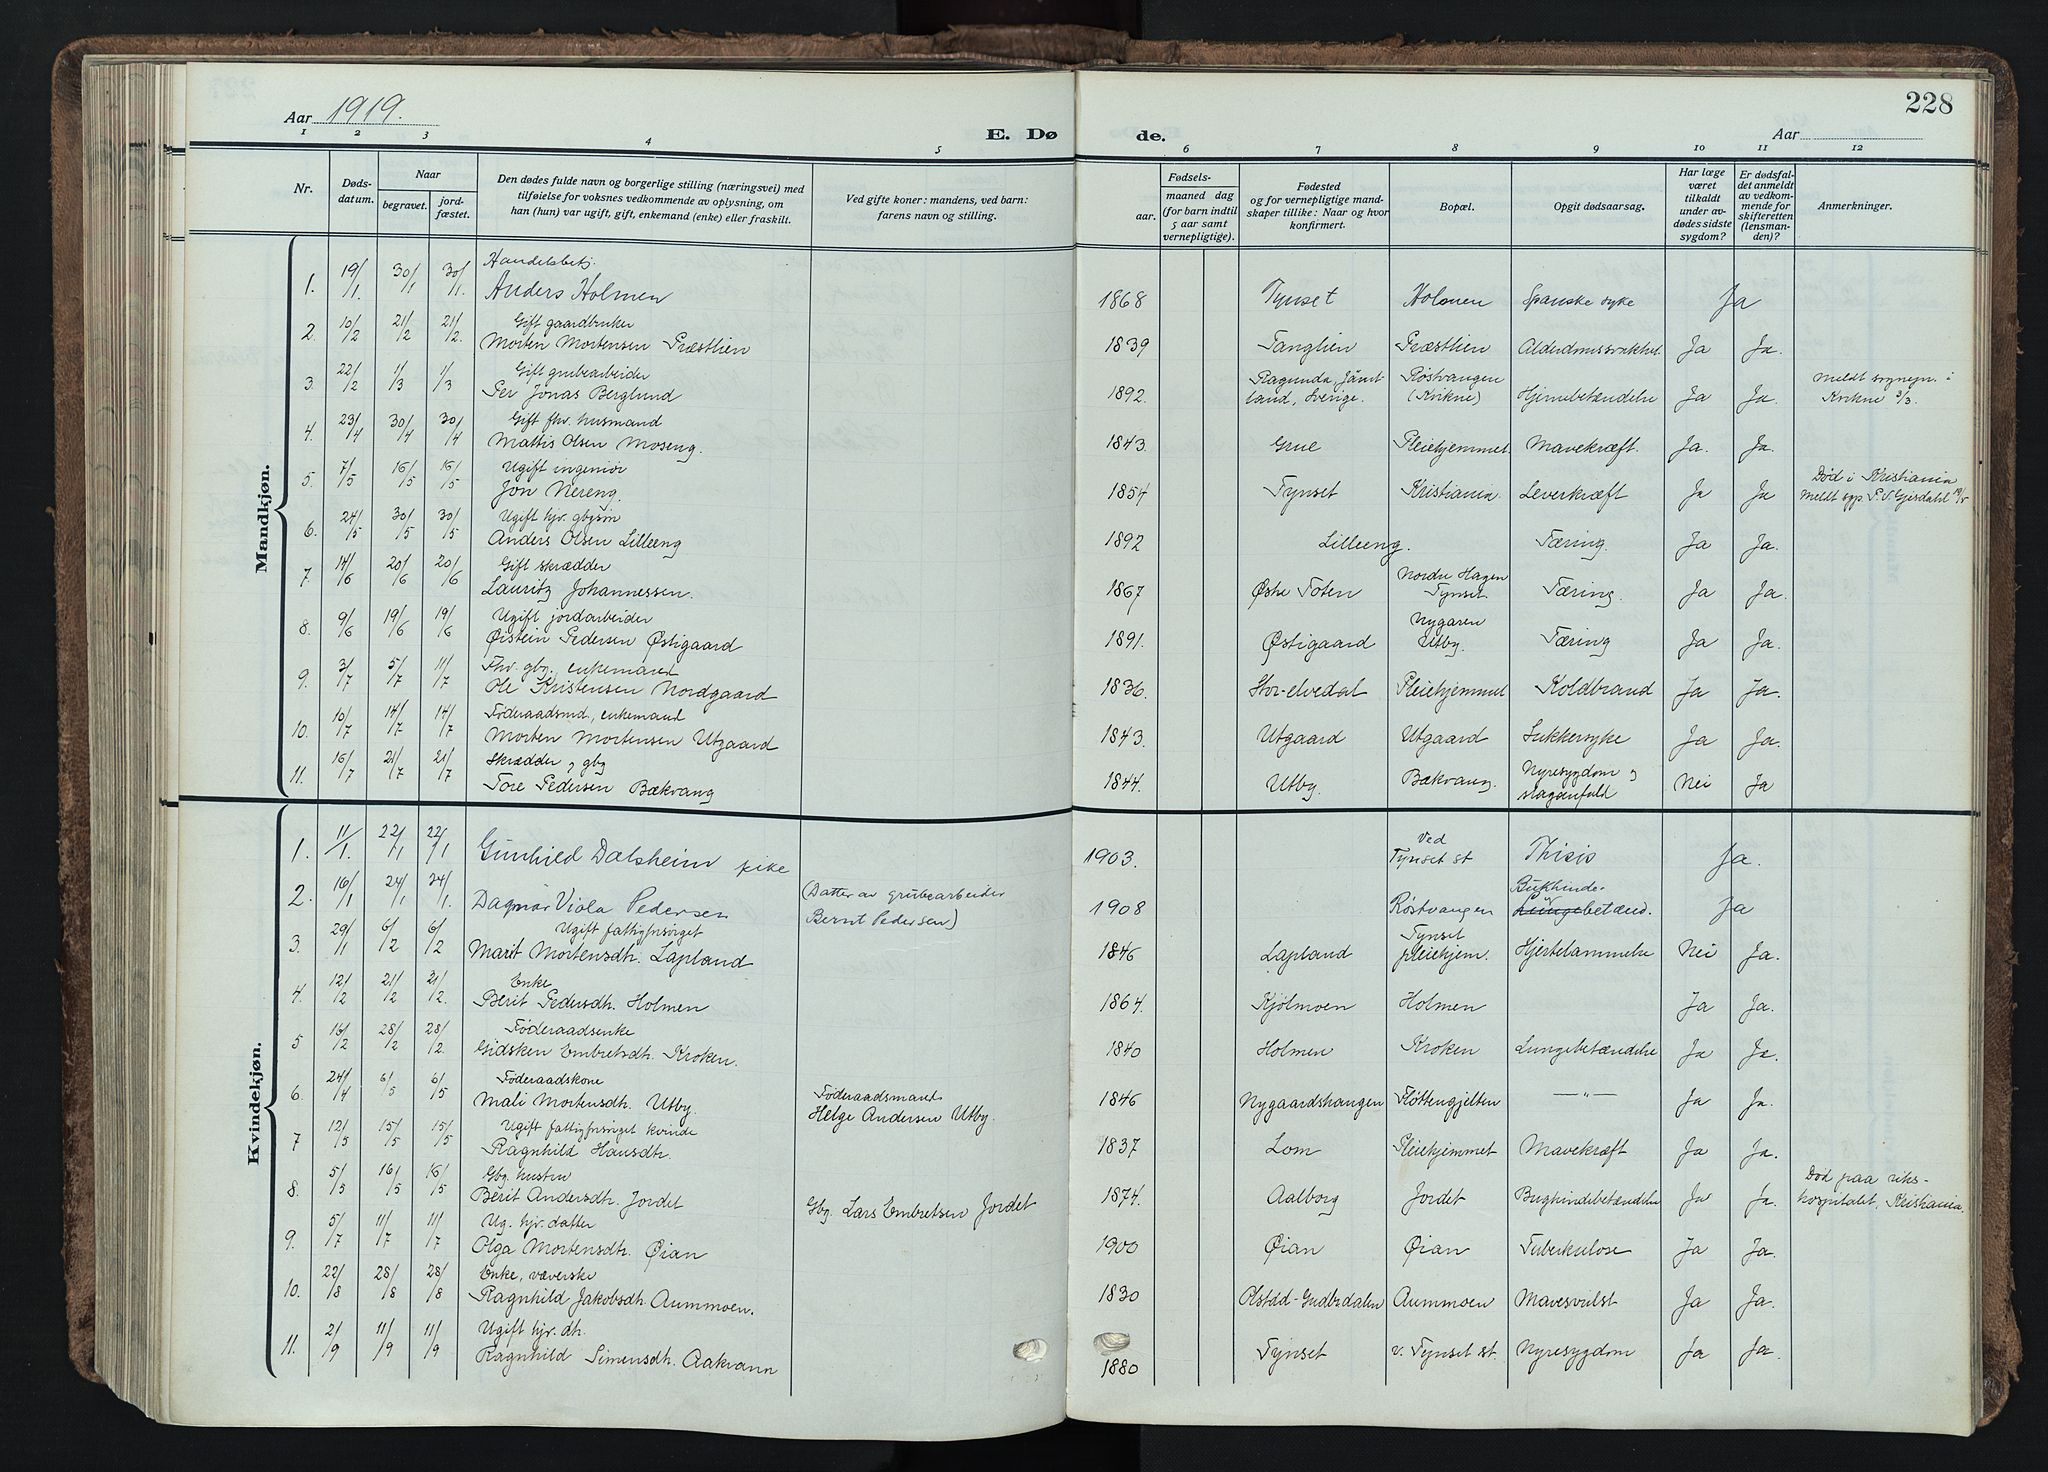 228
Aar 1919.
E. Dø de.
Aar
1 2 3 4 5 6 7 8 9 10 11 12
Nr. Døds-datum. Naar begravet. jord-fæstet. Den dødes fulde navn og borgerlige stilling (næringsvei) med tilføielse for voksnes vedkommende av oplysning, om han (hun) var ugift, gift, enkemand (enke) eller fraskilt. Ved gifte koner: mandens, ved barn: farens navn og stilling. Fødsels- aar. maaned dag (for barn indtil 5 aar samt vernepligtige). Fødested og for vernepligtige mand-skaper tillike: Naar og hvor konfirmert. Bopæl. Opgit dødsaarsag. Har læge været tilkaldt under av-dødes sidste sygdom? Er dødsfal-det anmeldt av vedkom-mende for skifteretten (lensman-den)? Anmerkninger.
Mandkjøn.
1. 19/1 30/1 30/1. Handelsbetj. Anders Holmen 1868 Tynset Holmen Spanske syke Ja
2. 10/2 21/2 21/2. Gift gaardbruker Morten Mortensen Præstlien 1839 Tanglien Præstlien Alderdomssvakhet Ja Ja.
3. 22/2 1/3 1/3 Gift grubearbeider Per Jonas Berglund 1892. Ragunda, Jämtland, Sverige. Röstvangen (Kvikne) Hjernebetændelse Ja Ja. Meldt sognepr. i Kvikne 3/3.
4. 23/4 30/4 30/4 Gift fhv. husmand Mattis Olsen Moseng. 1843. Grue Pleiehjemmet. Mavekræft. Ja. Ja.
5. 7/5 16/5 16/5 Ugift ingeniør Jon Nereng. 1854 Tynset Kristiania. Leverkræft Ja Ja Død i Kristiania Meldt sgp. P. V. Gjesdahl
6. 24/5 30/5 30/5 Ugift hjv. gbrsøn Anders Olsen Lilleeng 1892 Lilleeng. Tæring. Ja Ja.
7. 14/6 20/6 20/6 Gift skrædder Lauritz Johannessen. 1867 Østre Toten Nordre Hagen Tynset. Tæring. Ja Ja.
8. 9/6 19/6 19/6 Ugift jordarbeider Øistein Pedersen Østigaard 1891. Østigaard Nygaren Utby. Tæring Ja Ja.
9. 3/7 5/7 11/7 Fhv. gbr. enkemand Ole Kristensen Nordgaard 1836. Stor-elvedal Pleiehjemmet Koldbrand Ja Ja.
10. 10/7 14/7 14/7 Føderaadsmd., enkemand Morten Mortensen Utgaard 1843. Utgaard Utgaard Sukkersyke Ja Ja.
11. 16/7 21/7 21/7 Skrædder og gbr Tore Pedersen Bækvang 1844. Utby. Bækvang. Nyresygdom og slaganfald Nei Ja
Kvindekjøn.
1. 11/1. 22/1 22/1 Gunhild Dalsheim pike 1903. Ved Tynset st Thisis Ja.
2. 16/1 24/1 24/1. Dagmar Viola Pedersen (Datter av grubearbeider Bernt Pedersen) 1908 Röstvangen Bukhinde- Lungebetænd. Ja
3. 29/1 6/2 6/2 Ugift fattigforsørget Marit Mortensdtr. Lapland 1846 Lapland Tynset pleiehjem. Hjertelammelse Nei Ja.
4. 12/2 21/2 21/2. Enke Berit Pedersdtr. Holmen 1864. Kjølmoen Holmen Ja Ja.
5 16/2 28/2 28/2. Føderaadsenke Gidsken Embretsdtr. Kroken. 1840 Holmen Kroken Lungebetændelse Ja Ja.
6. 24/4 6/5 6/5 Føderaadskone Mali Mortensdtr. Utby. Føderaadsmand Helge Andersen Utby. 1846 Nygaardshaugen Fløttengjelten —"— Ja Ja.
7 12/5 15/5 15/5 Ugift fattigforsørget kvinde Ragnhild Hansdtr. 1837 Lom Pleiehjemmet Mavekræft Ja Ja.
8. 5/5 16/5 16/5 Gbr. hustru Berit Andersdtr. Jordet Gbr. Lars Embretsen Jordet 1874. Aalborg Jordet Bughindebetændelse Ja Ja. Død paa riks-hospitalet, Kristiania.
9. 5/7 11/7 11/7 Ug. hjv. datter Olga Mortensdtr. Øian 1900 Øian Øian Tuberkulose Ja Ja.
10. 22/8 28/8 28/8 Enke, væverske Ragnhild Jakobsdtr. Aummoen. 1830 Olstad-Gudbrdalen Aummoen Mavesvulst Ja Ja.
11. 2/9 11/9 11/9 Ugift hjv. dtr. Ragnhild Simensdtr. Aakrann 1880 Tynset v. Tynset st. Nyresygdom Ja Ja.